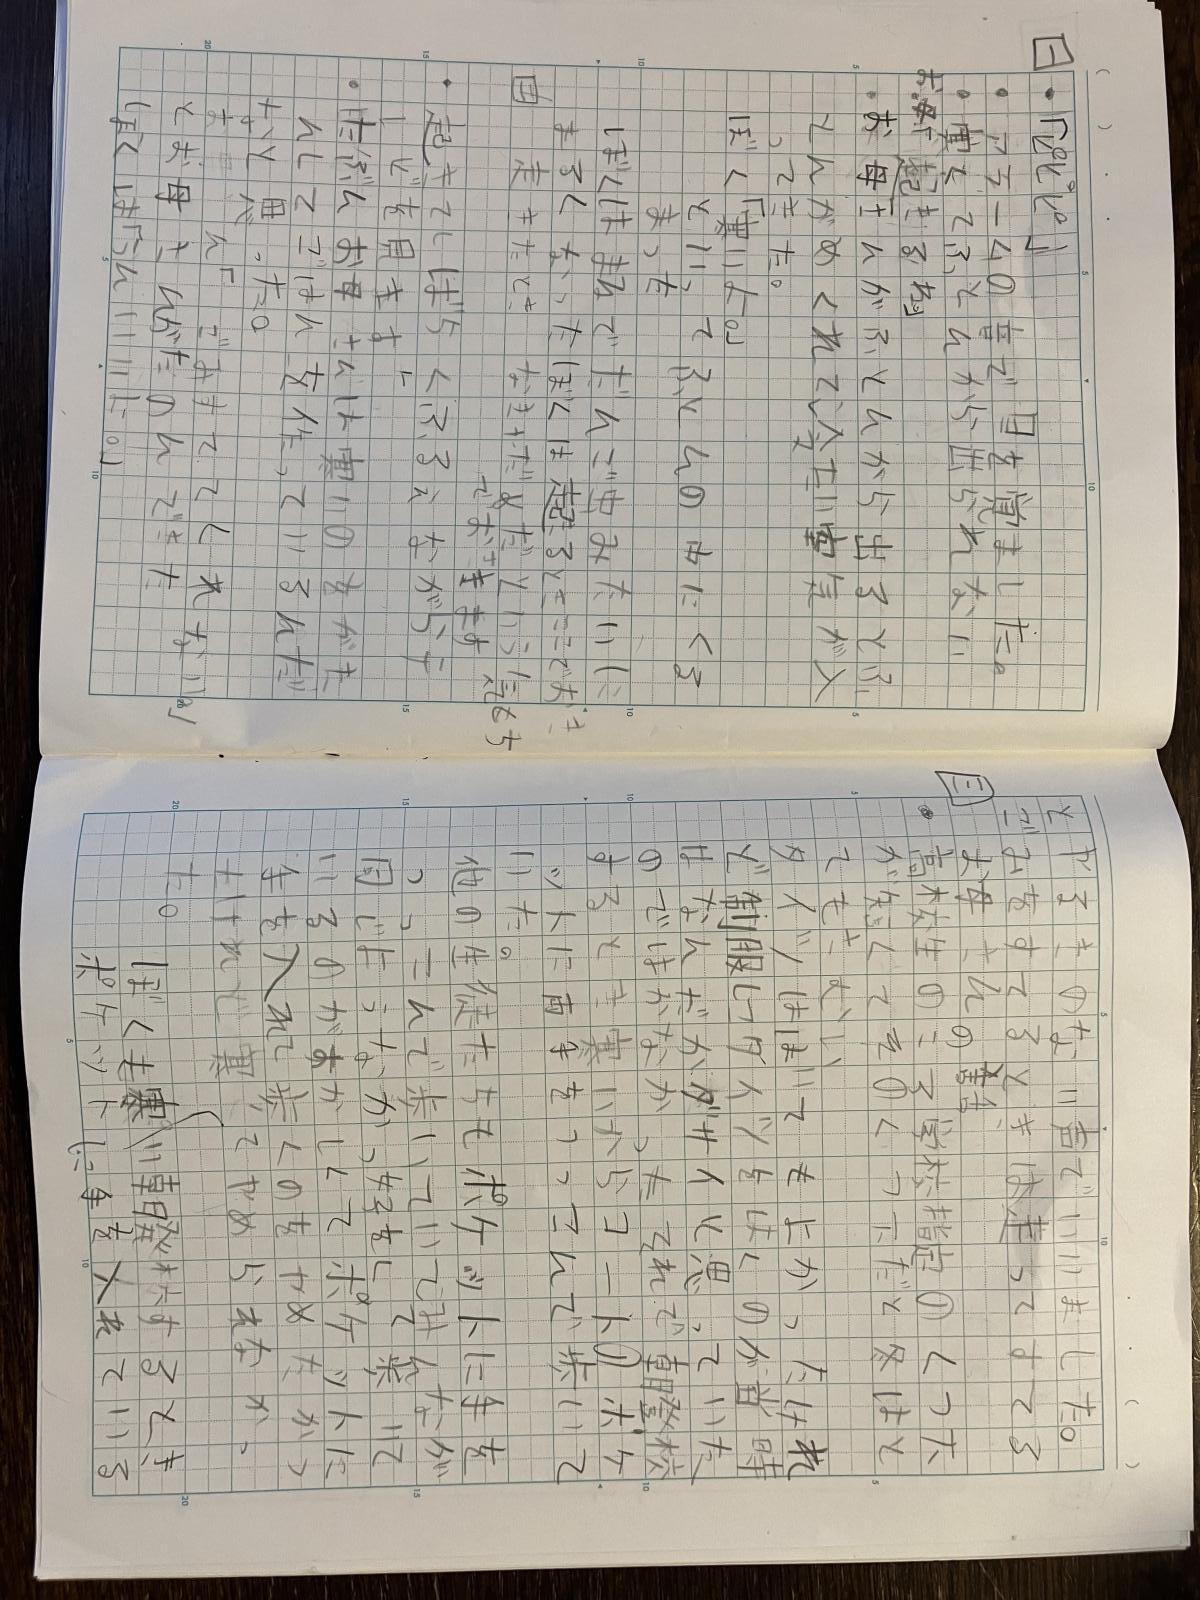 一
・「ピピピ」
・アラームの音で目を覚ました。
・寒くてふとんから出られない
・お母さんがふとんから出るとふ
とんがめくれて冷たい空気が入
ってきた。
ぼく「寒いよ。」
といってふとんの中にくる
まった
ぼくはまるでだんご虫みたいに
まるくなったぼくは起るところで
なまけだめだという気もち
でおきます
二
・起きてしばらくふるえながらテ
レビを見ます
・たぶんお母さんは寒いのをがま
んしてごはんを作っているんだ
なと思った。
お母さん「ごみすててくれない。」
とお母さんがたのんできた
ぼくは「うんいいよ。」
とやるきのない声でいいました。
ごみをすてるときは走ってすてる
お母さんの
三
・高校生のころ学校指定のくつ下
が短くてそのくつ下だと冬はと
てもさむい
タイツはいてもよかったけれ
ど制服にタイツをはくのが当時
はなんだかダサイと思っていた
のではかなかったそれで朝登校
するとき寒いからコートのポケ
ットに両手をつっこんで歩いて
いた。
他の生徒たちもポケットに手を
つっこんで歩いていてみんなが
同じようなかっ好をして歩いて
いるのがおかしくてポケットに
手を入れて歩くのをやめたかっ
たけれど寒くてやめられなかっ
た。
ぼくも寒い朝登校するとき
ポケットに手を入れている